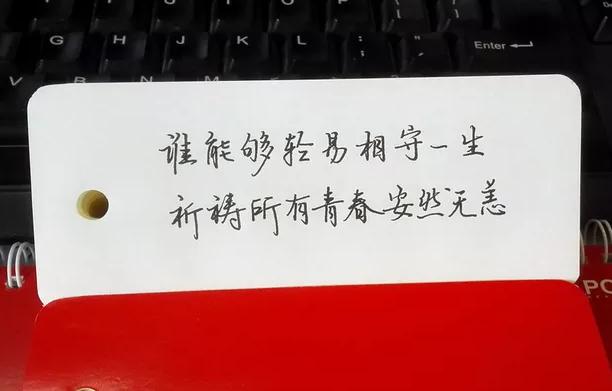 谁能够轻易相守一生
祈祷所有青春安然无恙
G H J K L : ; " ' Enter
V B N M
PO